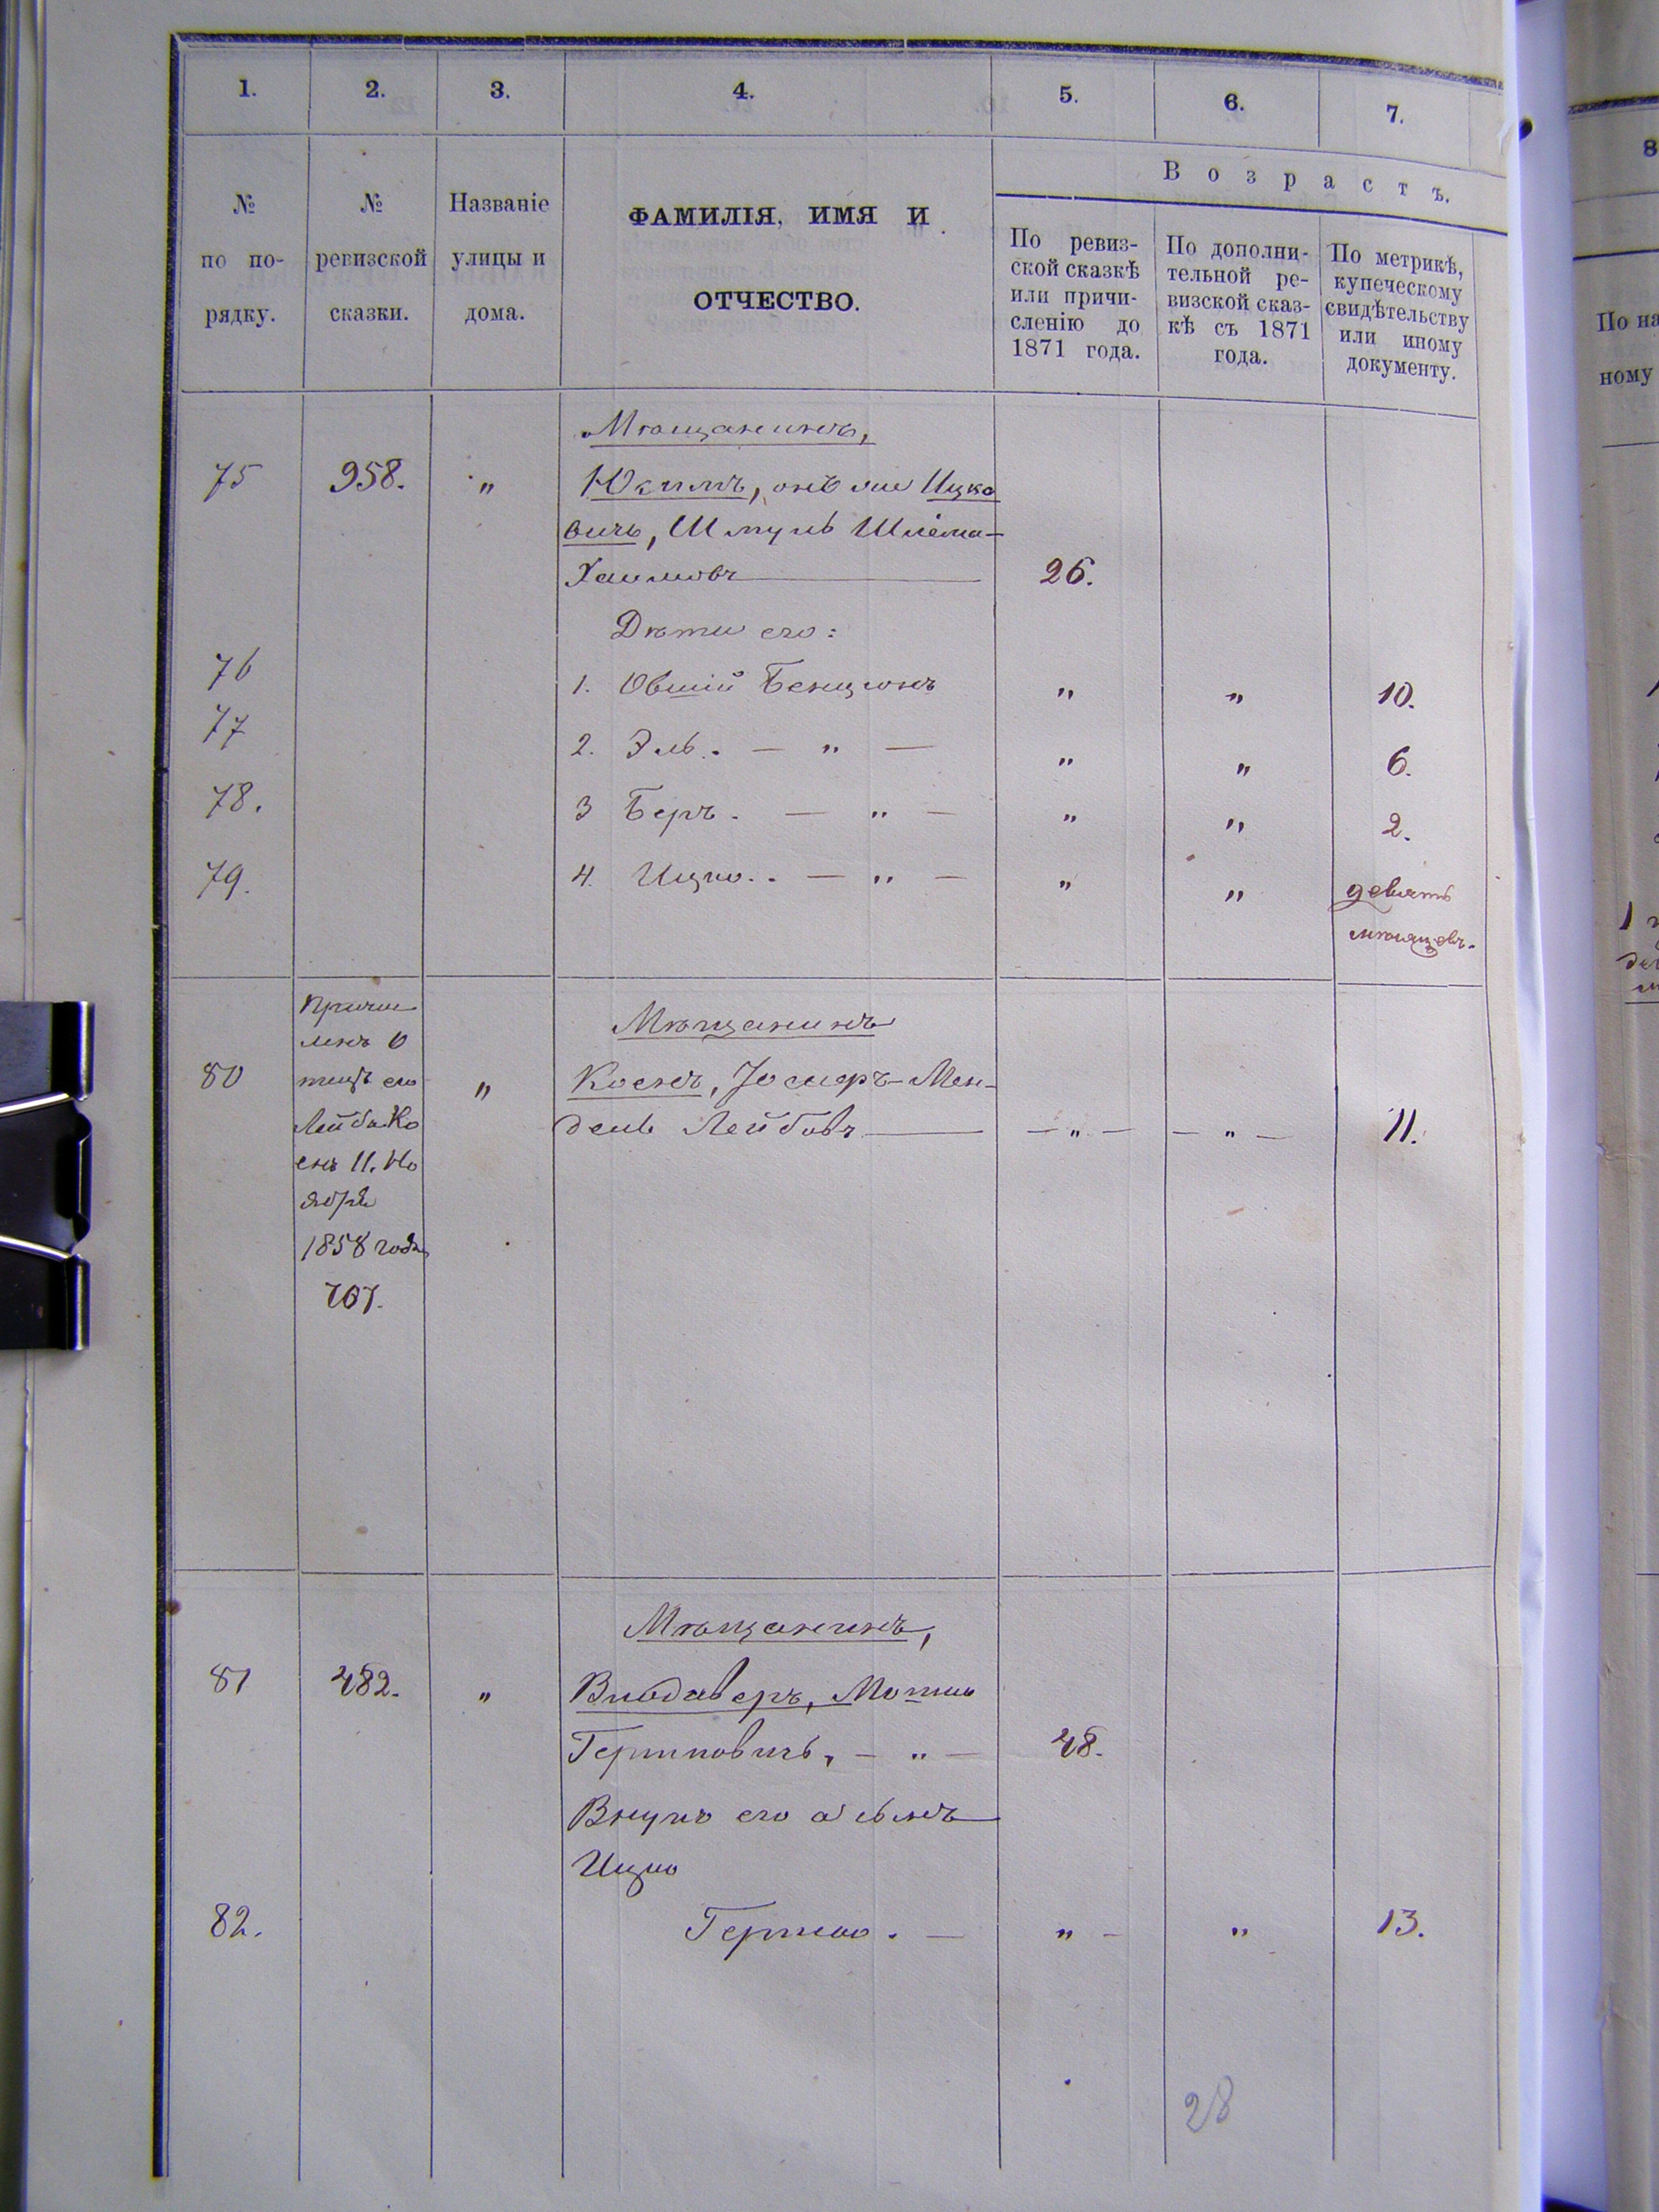 1. 2. 3. 4. 5. 6. 7.
№ по по-рядку.
№ ревизской сказки.
Названіе улицы и дома.
ФАМИЛІЯ, ИМЯ И
ОТЧЕСТВО.
Возрастъ.
По ревиз-
ской сказкѣ
или причи-
сленію до
1871 года.
По дополни-
тельной ре-
визской сказ-
кѣ съ 1871
года.
По метрикѣ,
купеческому
свидѣтельству
или иному
документу.
Мѣщанинъ,
75 958. " онъ же Ицко
вичь, Шмуль Шлема-
Хаимовъ 26.
Дѣти его:
76 1. Овшій Бенционъ " " 10.
77 2. Эль. — " — " " 6.
78. 3 Беръ. — " — " " 2.
79. 4. Ицко.. — " — " " девять
мѣсяцевъ.
Причи
ленъ О
тецъ его
Лейба Ко
енъ 11. Но
ября
1858 года
767.
Мѣщанинъ
80 " Коенъ, Іосифъ-Мен-
дель Лейбовъ — " — — " — 11.
Мѣщанинъ,
81 482. " Влодаверъ, Мотель
Гершковичь, — " — 48.
Внукъ его а сынъ
Ицко
82. Гершко. — " — " 13.
28
8
По на
ному